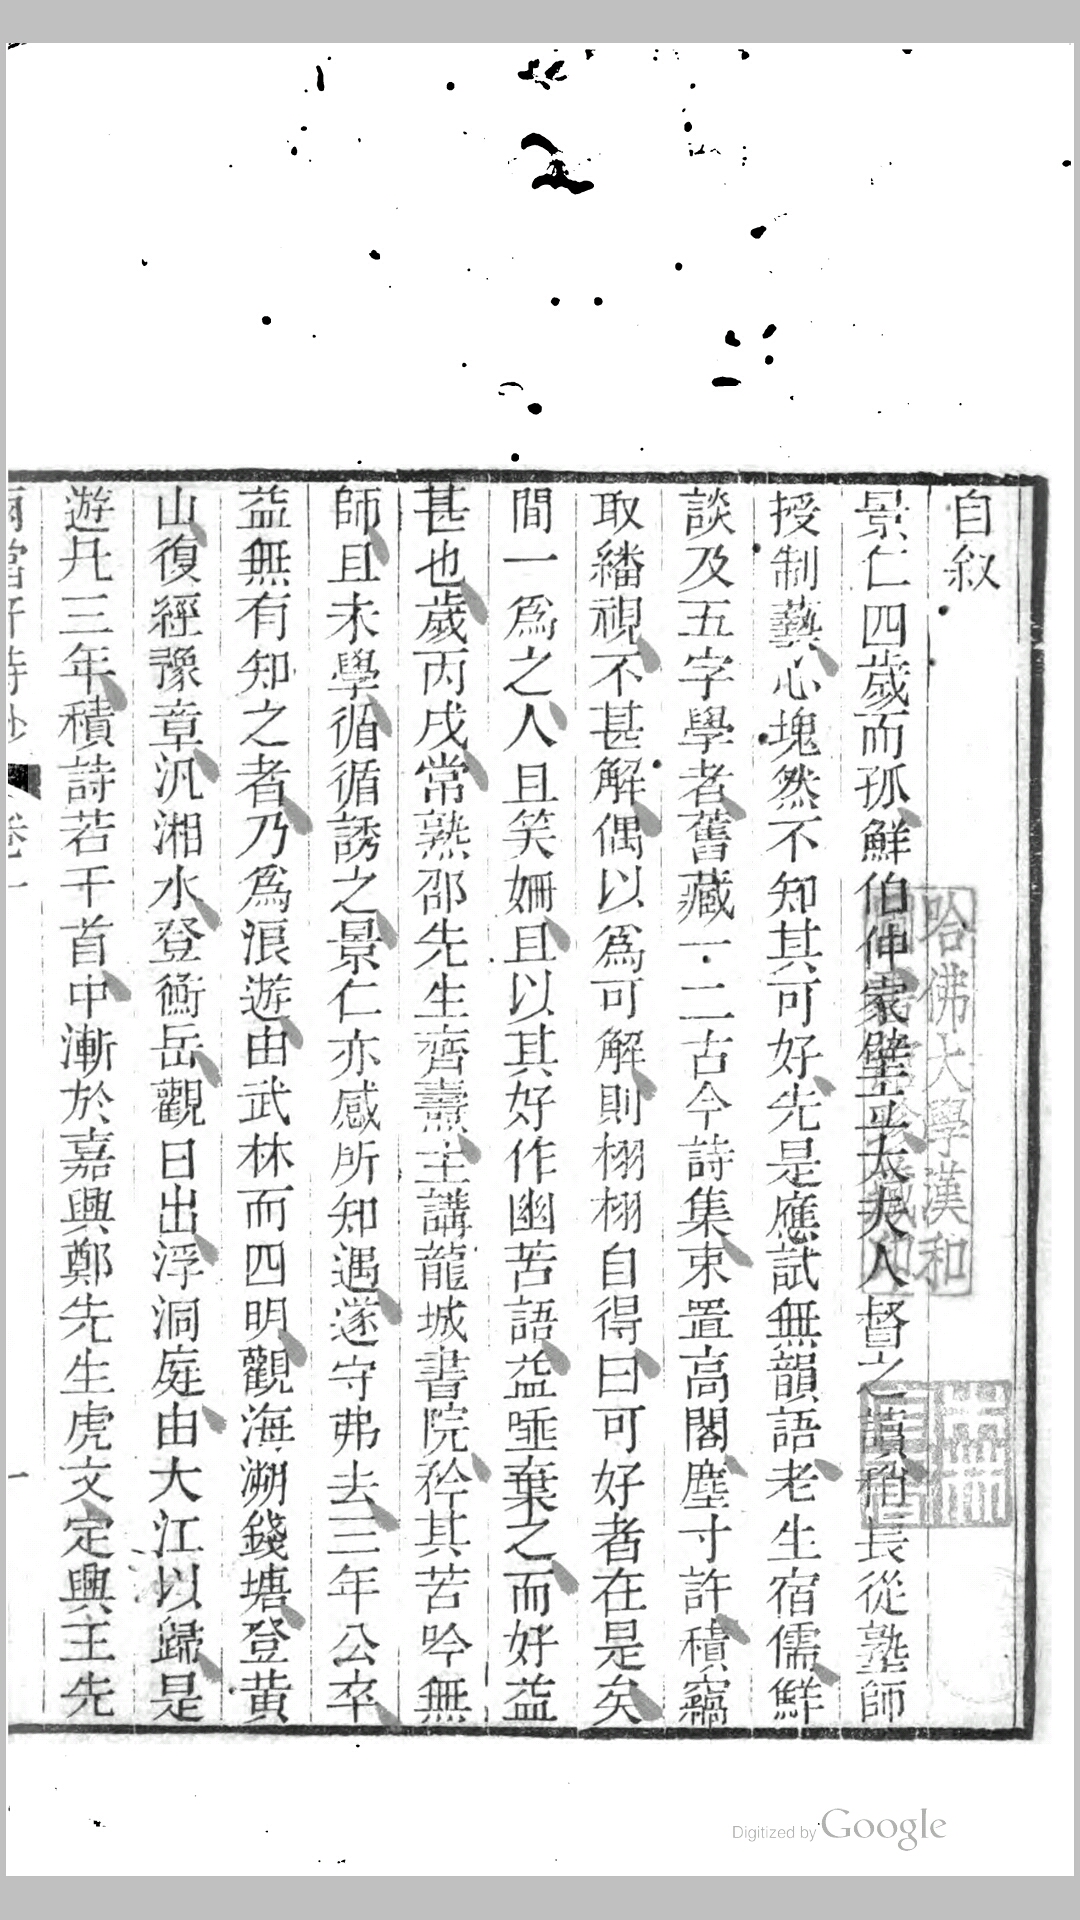 自叙
景仁四歲而孤鮮伯仲家壁立太夫人督之讀稍長從塾師
授制藝心塊然不知其可好先是應試無韻語老生宿儒鮮
談及五字學者舊藏一二古今詩集束置高閣塵寸許積竊
取繙視不甚解偶以爲可解則栩栩自得曰可好者在是矣
間一爲之人且笑姍且以其好作幽苦語益唾棄之而好益
甚也歲丙戌常熟邵先生齊燾主講龍城書院矜其苦吟無
師且未學循循誘之景仁亦感所知遇遂守弗去三年公卒
益無有知之者乃爲浪遊由武林而四明觀海溯錢塘登黄
山復經豫章汎湘水登衡岳觀日出浮洞庭由大江以歸是
遊凡三年積詩若干首中漸於嘉興鄭先生虎文定興王先
哈佛大學漢和
Digitized by Google